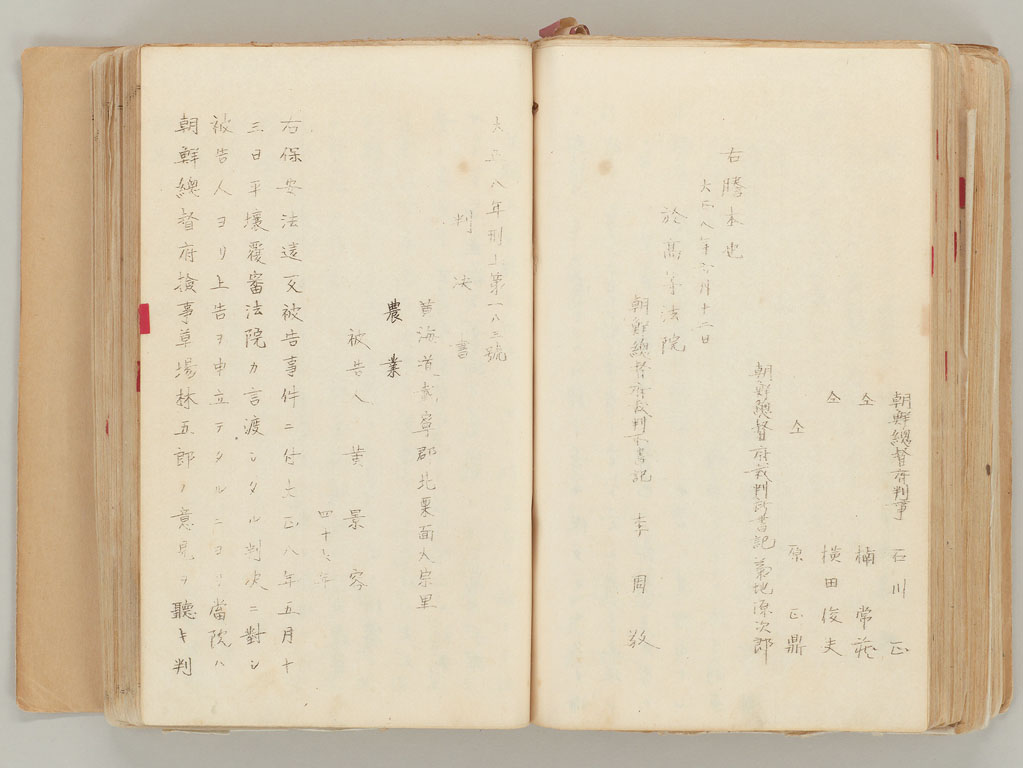 朝鮮總督府判事 石川正
仝 楠常藏
仝 横田俊夫
仝 原正鼎
朝鮮總督府裁判所書記 菊地源次郎
右謄本也
大正八年六月十二日
於高等法院
朝鮮總督府裁判所書記 李周敬
大正八年刑上第一八三號
判決書
黄海道載寧郡北栗面大宗里
農業
被告人 黄景容
四十六年
右保安法違反被告事件ニ付大正八年五月十
三日平壤覆審法院カ言渡シタル判決ニ對シ
被告人ヨリ上告ヲ申立テタルニヨリ當院ハ
朝鮮總督府檢事草場林五郎ノ意見ヲ聽キ判